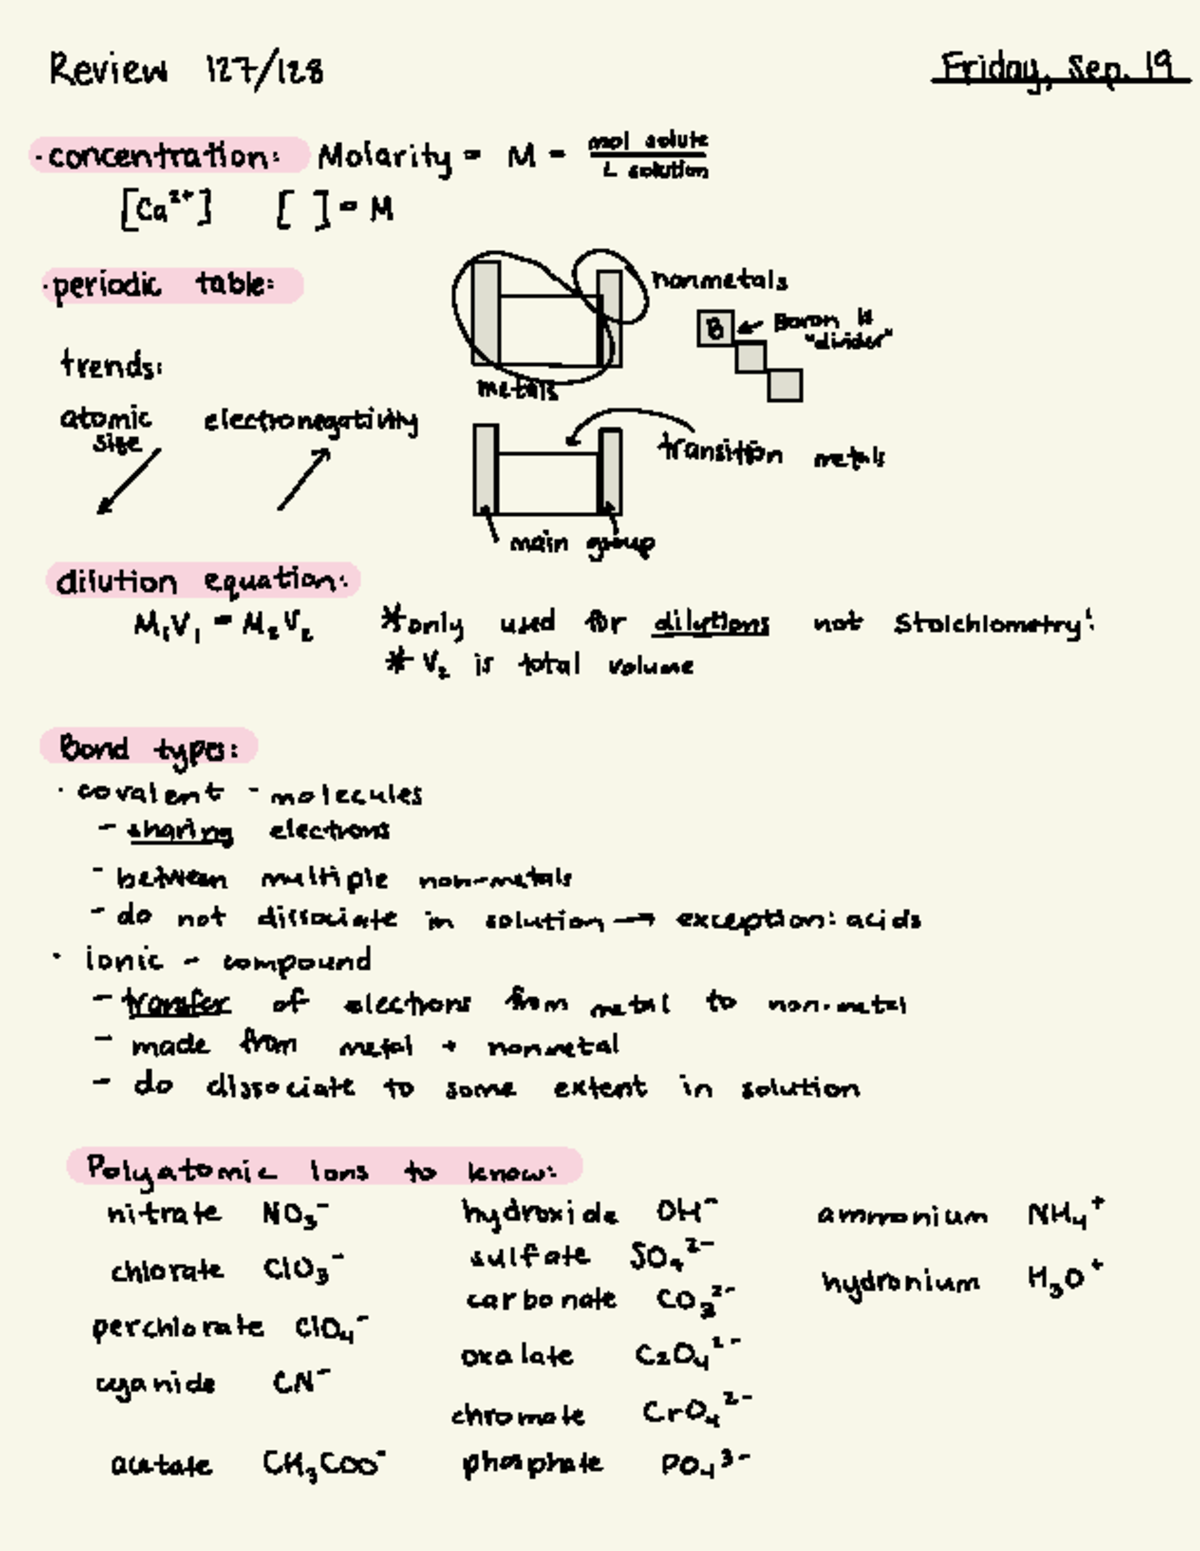 Review 127/128
Friday, Sep. 19
· concentration: Molarity = M = mol solute / L solution
[Ca²⁺] [ ] = M
· periodic table:
nonmetals
B ← Boron is "divider"
metals
trends:
atomic size
electronegativity
transition metals
main group
dilution equation:
M₁V₁ = M₂V₂ * only used for dilutions not Stoichiometry!
* V₂ is total volume
Bond types:
· covalent - molecules
- sharing electrons
- between multiple non-metals
- do not dissociate in solution → exception: acids
· ionic - compound
- transfer of electrons from metal to non-metal
- made from metal + nonmetal
- do dissociate to some extent in solution
Polyatomic Ions to know:
nitrate NO₃⁻ hydroxide OH⁻ ammonium NH₄⁺
chlorate ClO₃⁻ sulfate SO₄²⁻ hydronium H₃O⁺
carbonate CO₃²⁻
perchlorate ClO₄⁻ oxalate C₂O₄²⁻
cyanide CN⁻ chromate CrO₄²⁻
acetate CH₃COO⁻ phosphate PO₄³⁻